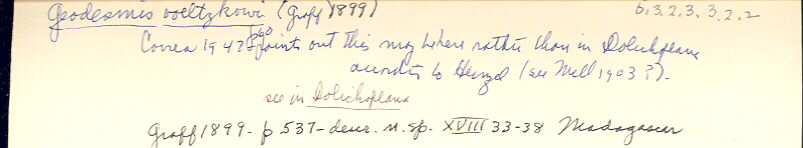 Geodesmis voeltzkowi (Graff 1899) 6.3.2.3.3.2.2
Correa 1947 p60 points out this may be here rather than in Dolichoplana
according to Heinzel (see Mell 1903?).
see in Dolichoplana
Graff 1899 - p 537 - descr. n. sp. XVIII 33-38 Madagascar